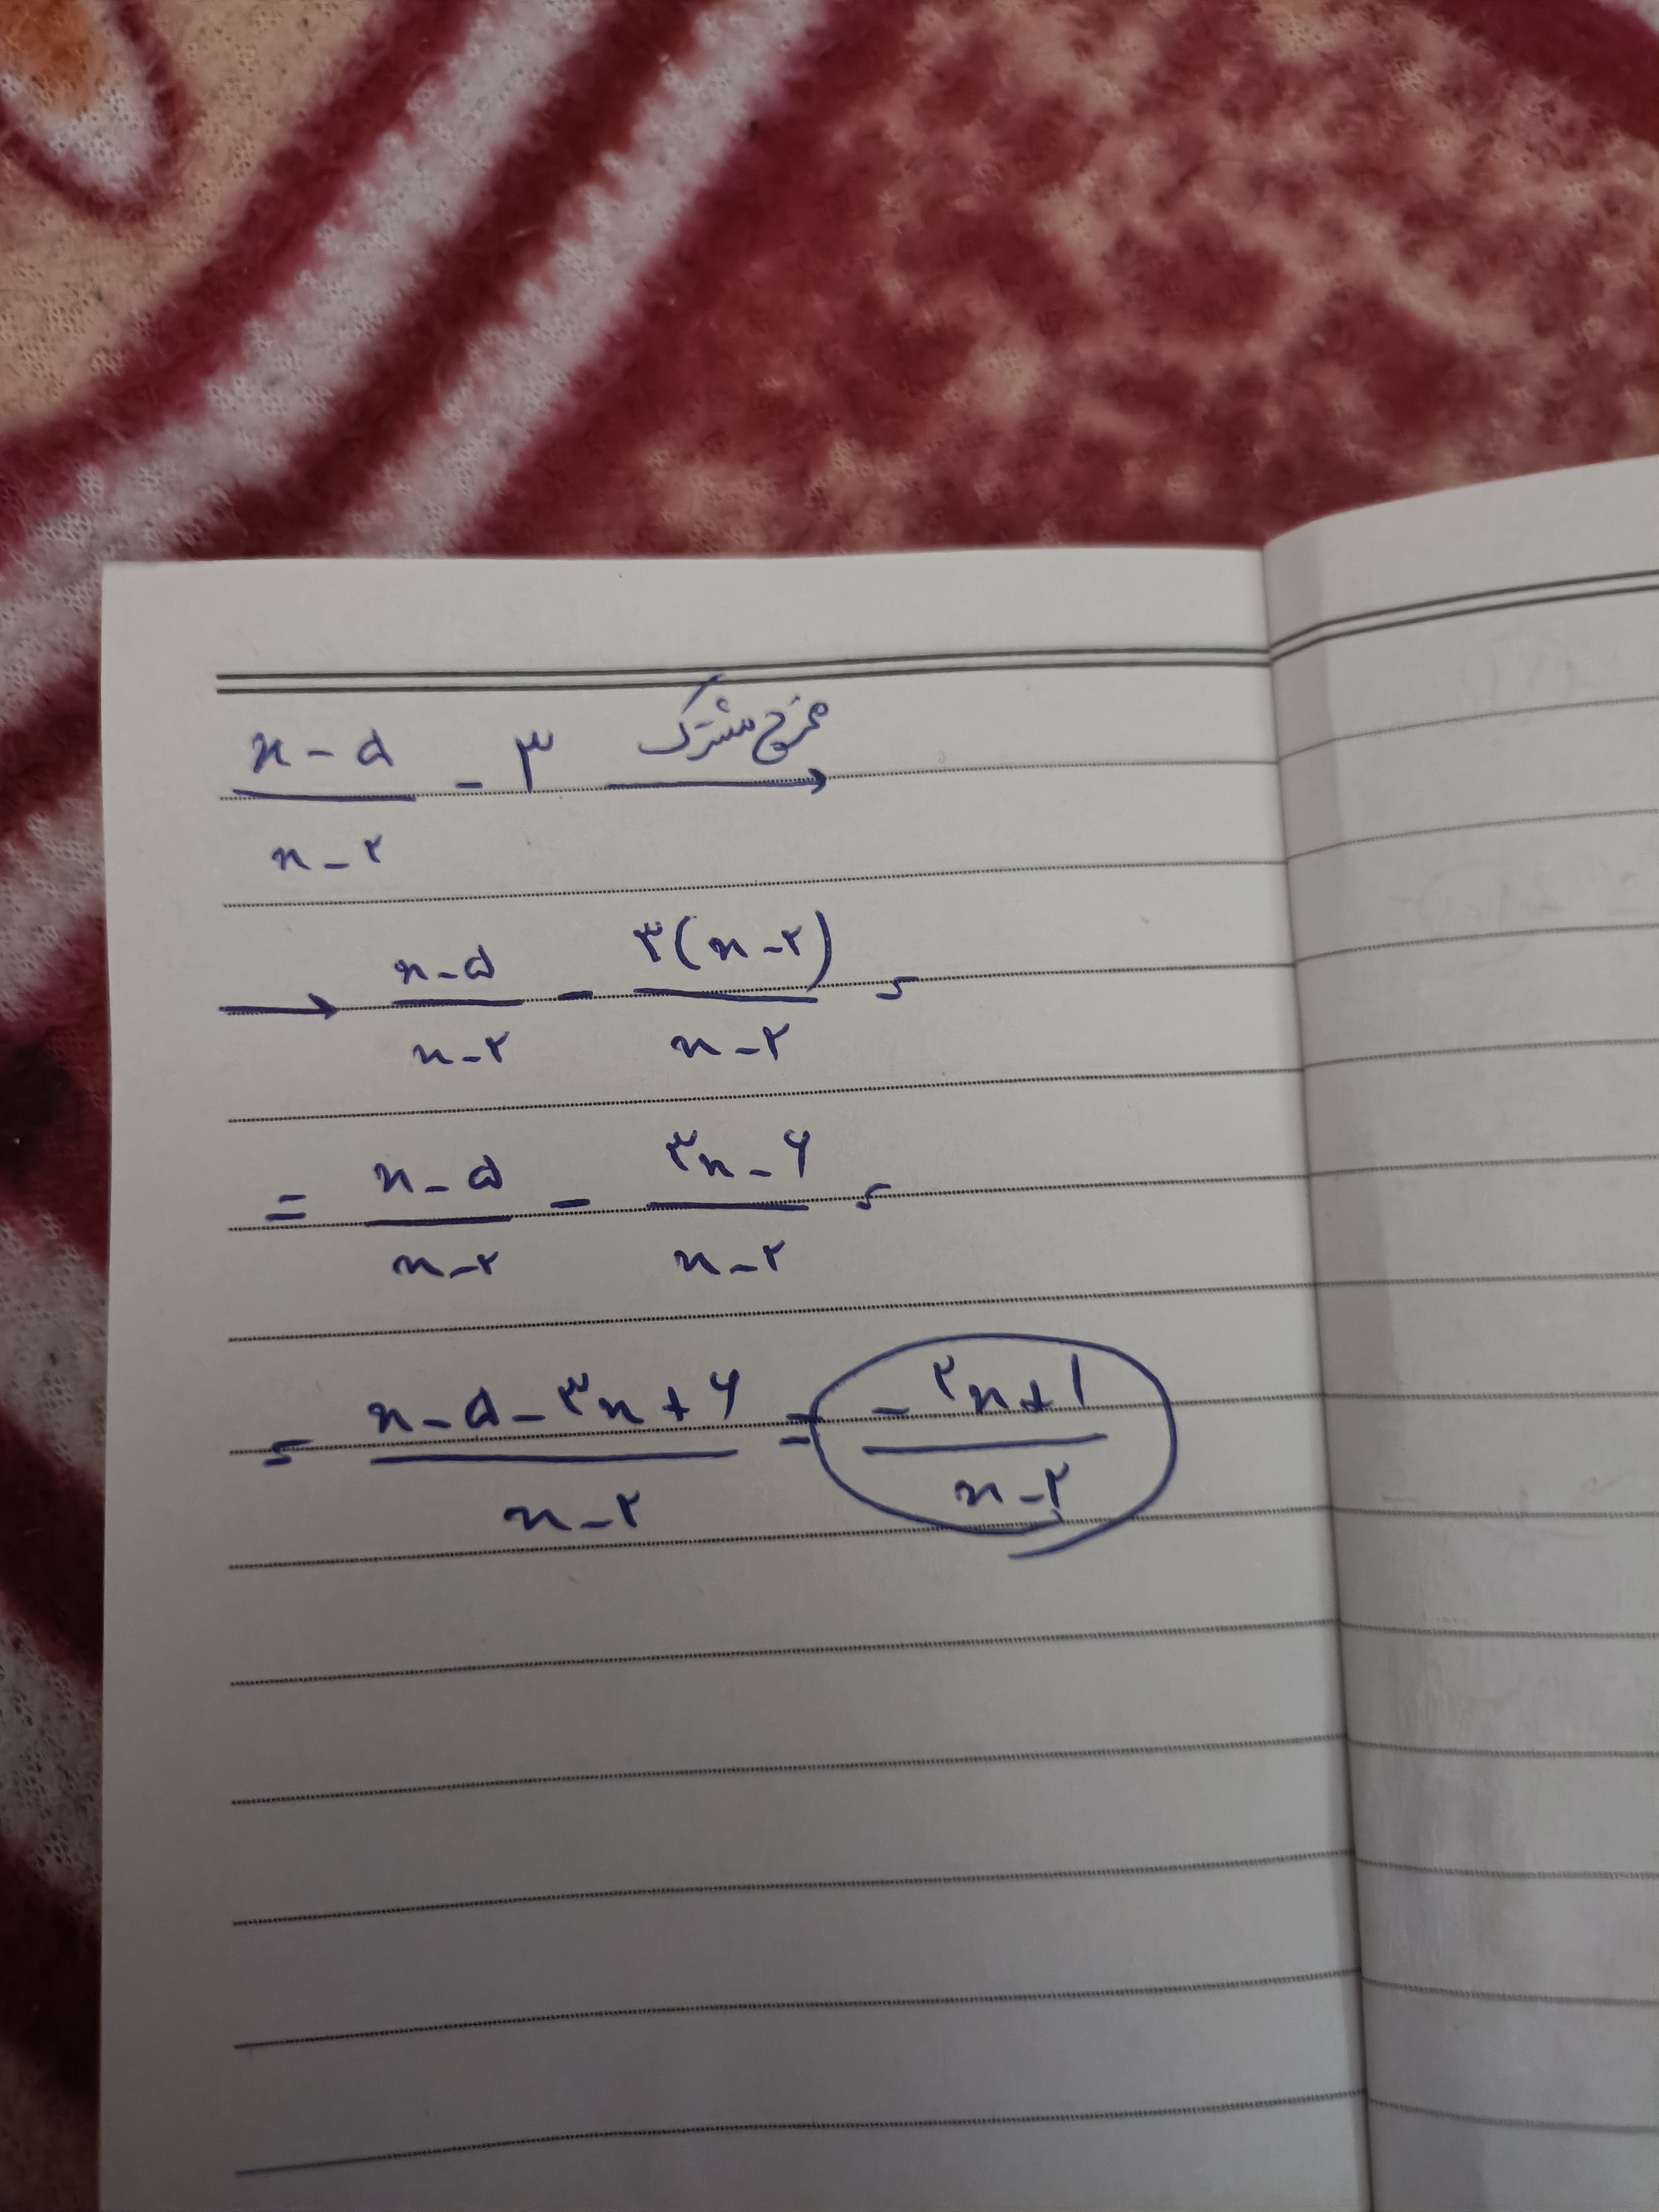 (x - ۵)/(x - ۲) - ۳ مخرج مشترک →
→ (x - ۵)/(x - ۲) - ۳(x - ۲)/(x - ۲) =
= (x - ۵)/(x - ۲) - (۳x - ۶)/(x - ۲) =
= (x - ۵ - ۳x + ۶)/(x - ۲) = (-۲x + ۱)/(x - ۲)